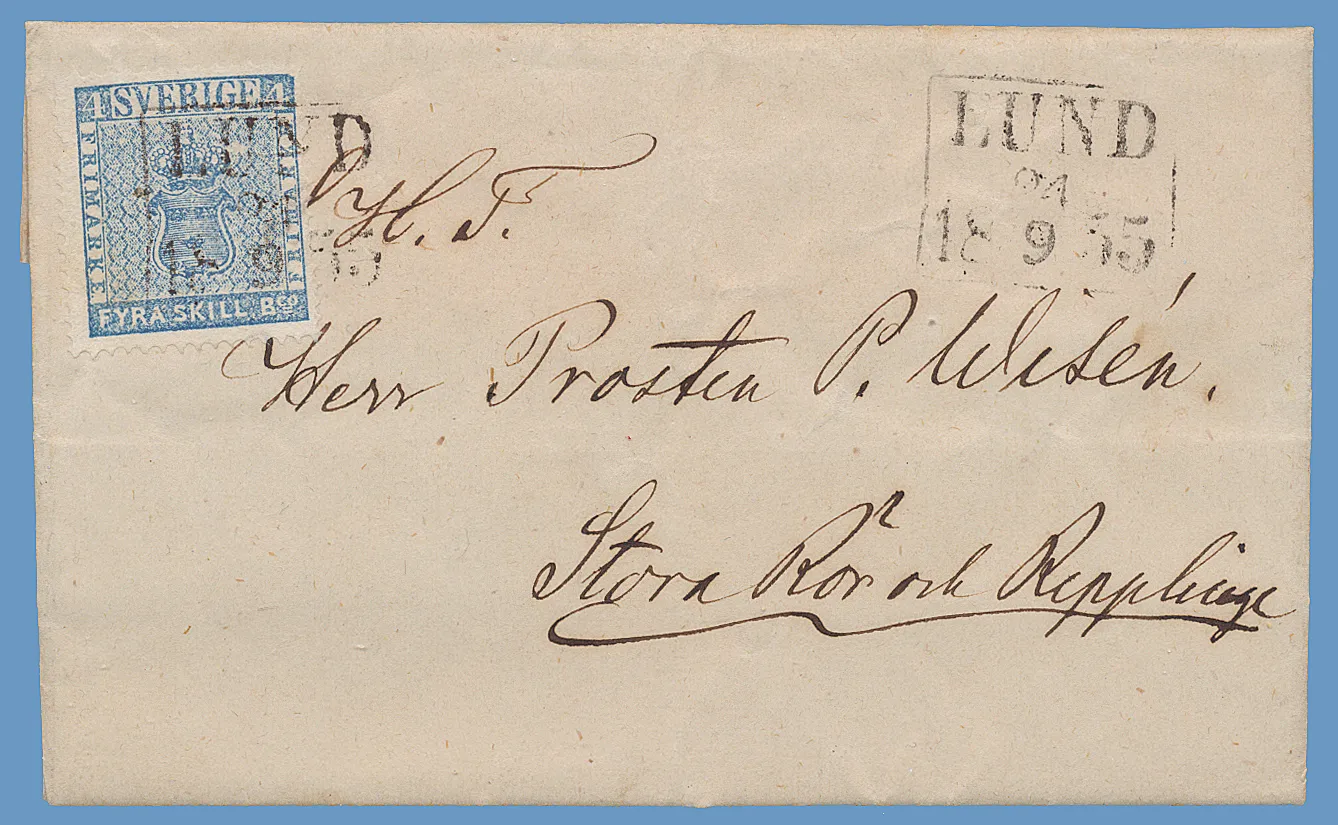 4 SVERIGE 4
FRIMÄRKE
FRIMÄRKE
FYRA SKILL. Bco
LUND
24
18 9 55
LUND
24
18 9 55
H. T.
Herr Prosten P. Wisén.
Stora Rör och Repplinge